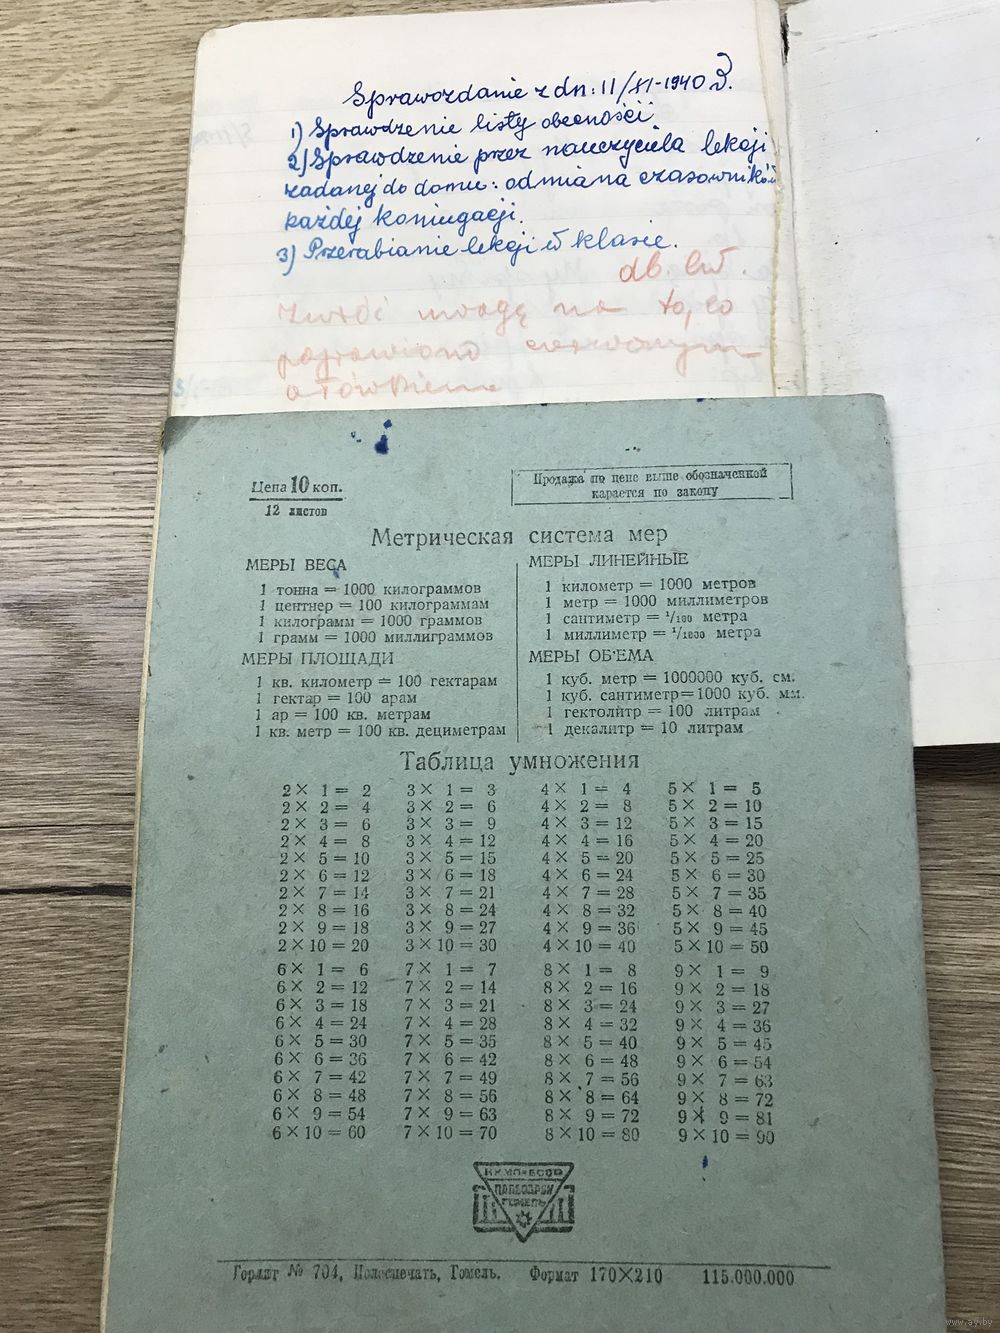 Sprawozdanie z dn: 11/XI-1940 r.
1) Sprawdzenie listy obecności
2) Sprawdzenie przez nauczyciela lekcji
zadanej do domu: odmiana czasowników
każdej koniugacji.
3) Przerabianie lekcji w klasie.
db.
zwróć uwagę na to, co
poprawiono czerwonym
ołówkiem
Цена 10 коп.
12 листов
Продажа по цене выше обозначенной
карается по закону
Метрическая система мер
МЕРЫ ВЕСА
1 тонна = 1000 килограммов
1 центнер = 100 килограммам
1 килограмм = 1000 граммов
1 грамм = 1000 миллиграммов
МЕРЫ ПЛОЩАДИ
1 кв. километр = 100 гектарам
1 гектар = 100 арам
1 ар = 100 кв. метрам
1 кв. метр = 100 кв. дециметрам
МЕРЫ ЛИНЕЙНЫЕ
1 километр = 1000 метров
1 метр = 1000 миллиметров
1 сантиметр = 1/100 метра
1 миллиметр = 1/1000 метра
МЕРЫ ОБ'ЕМА
1 куб. метр = 1000000 куб. см.
1 куб. сантиметр=1000 куб. мм.
1 гектолитр = 100 литрам
1 декалитр = 10 литрам
Таблица умножения
2 × 1 = 2 3 × 1 = 3 4 × 1 = 4 5 × 1 = 5
2 × 2 = 4 3 × 2 = 6 4 × 2 = 8 5 × 2 = 10
2 × 3 = 6 3 × 3 = 9 4 × 3 = 12 5 × 3 = 15
2 × 4 = 8 3 × 4 = 12 4 × 4 = 16 5 × 4 = 20
2 × 5 = 10 3 × 5 = 15 4 × 5 = 20 5 × 5 = 25
2 × 6 = 12 3 × 6 = 18 4 × 6 = 24 5 × 6 = 30
2 × 7 = 14 3 × 7 = 21 4 × 7 = 28 5 × 7 = 35
2 × 8 = 16 3 × 8 = 24 4 × 8 = 32 5 × 8 = 40
2 × 9 = 18 3 × 9 = 27 4 × 9 = 36 5 × 9 = 45
2 × 10 = 20 3 × 10 = 30 4 × 10 = 40 5 × 10 = 50
6 × 1 = 6 7 × 1 = 7 8 × 1 = 8 9 × 1 = 9
6 × 2 = 12 7 × 2 = 14 8 × 2 = 16 9 × 2 = 18
6 × 3 = 18 7 × 3 = 21 8 × 3 = 24 9 × 3 = 27
6 × 4 = 24 7 × 4 = 28 8 × 4 = 32 9 × 4 = 36
6 × 5 = 30 7 × 5 = 35 8 × 5 = 40 9 × 5 = 45
6 × 6 = 36 7 × 6 = 42 8 × 6 = 48 9 × 6 = 54
6 × 7 = 42 7 × 7 = 49 8 × 7 = 56 9 × 7 = 63
6 × 8 = 48 7 × 8 = 56 8 × 8 = 64 9 × 8 = 72
6 × 9 = 54 7 × 9 = 63 8 × 9 = 72 9 × 9 = 81
6 × 10 = 60 7 × 10 = 70 8 × 10 = 80 9 × 10 = 90
ГОМЕЛЬ
Горлит № 704, Полеспечать, Гомель. Формат 170×210 115.000.000
www.ay.by